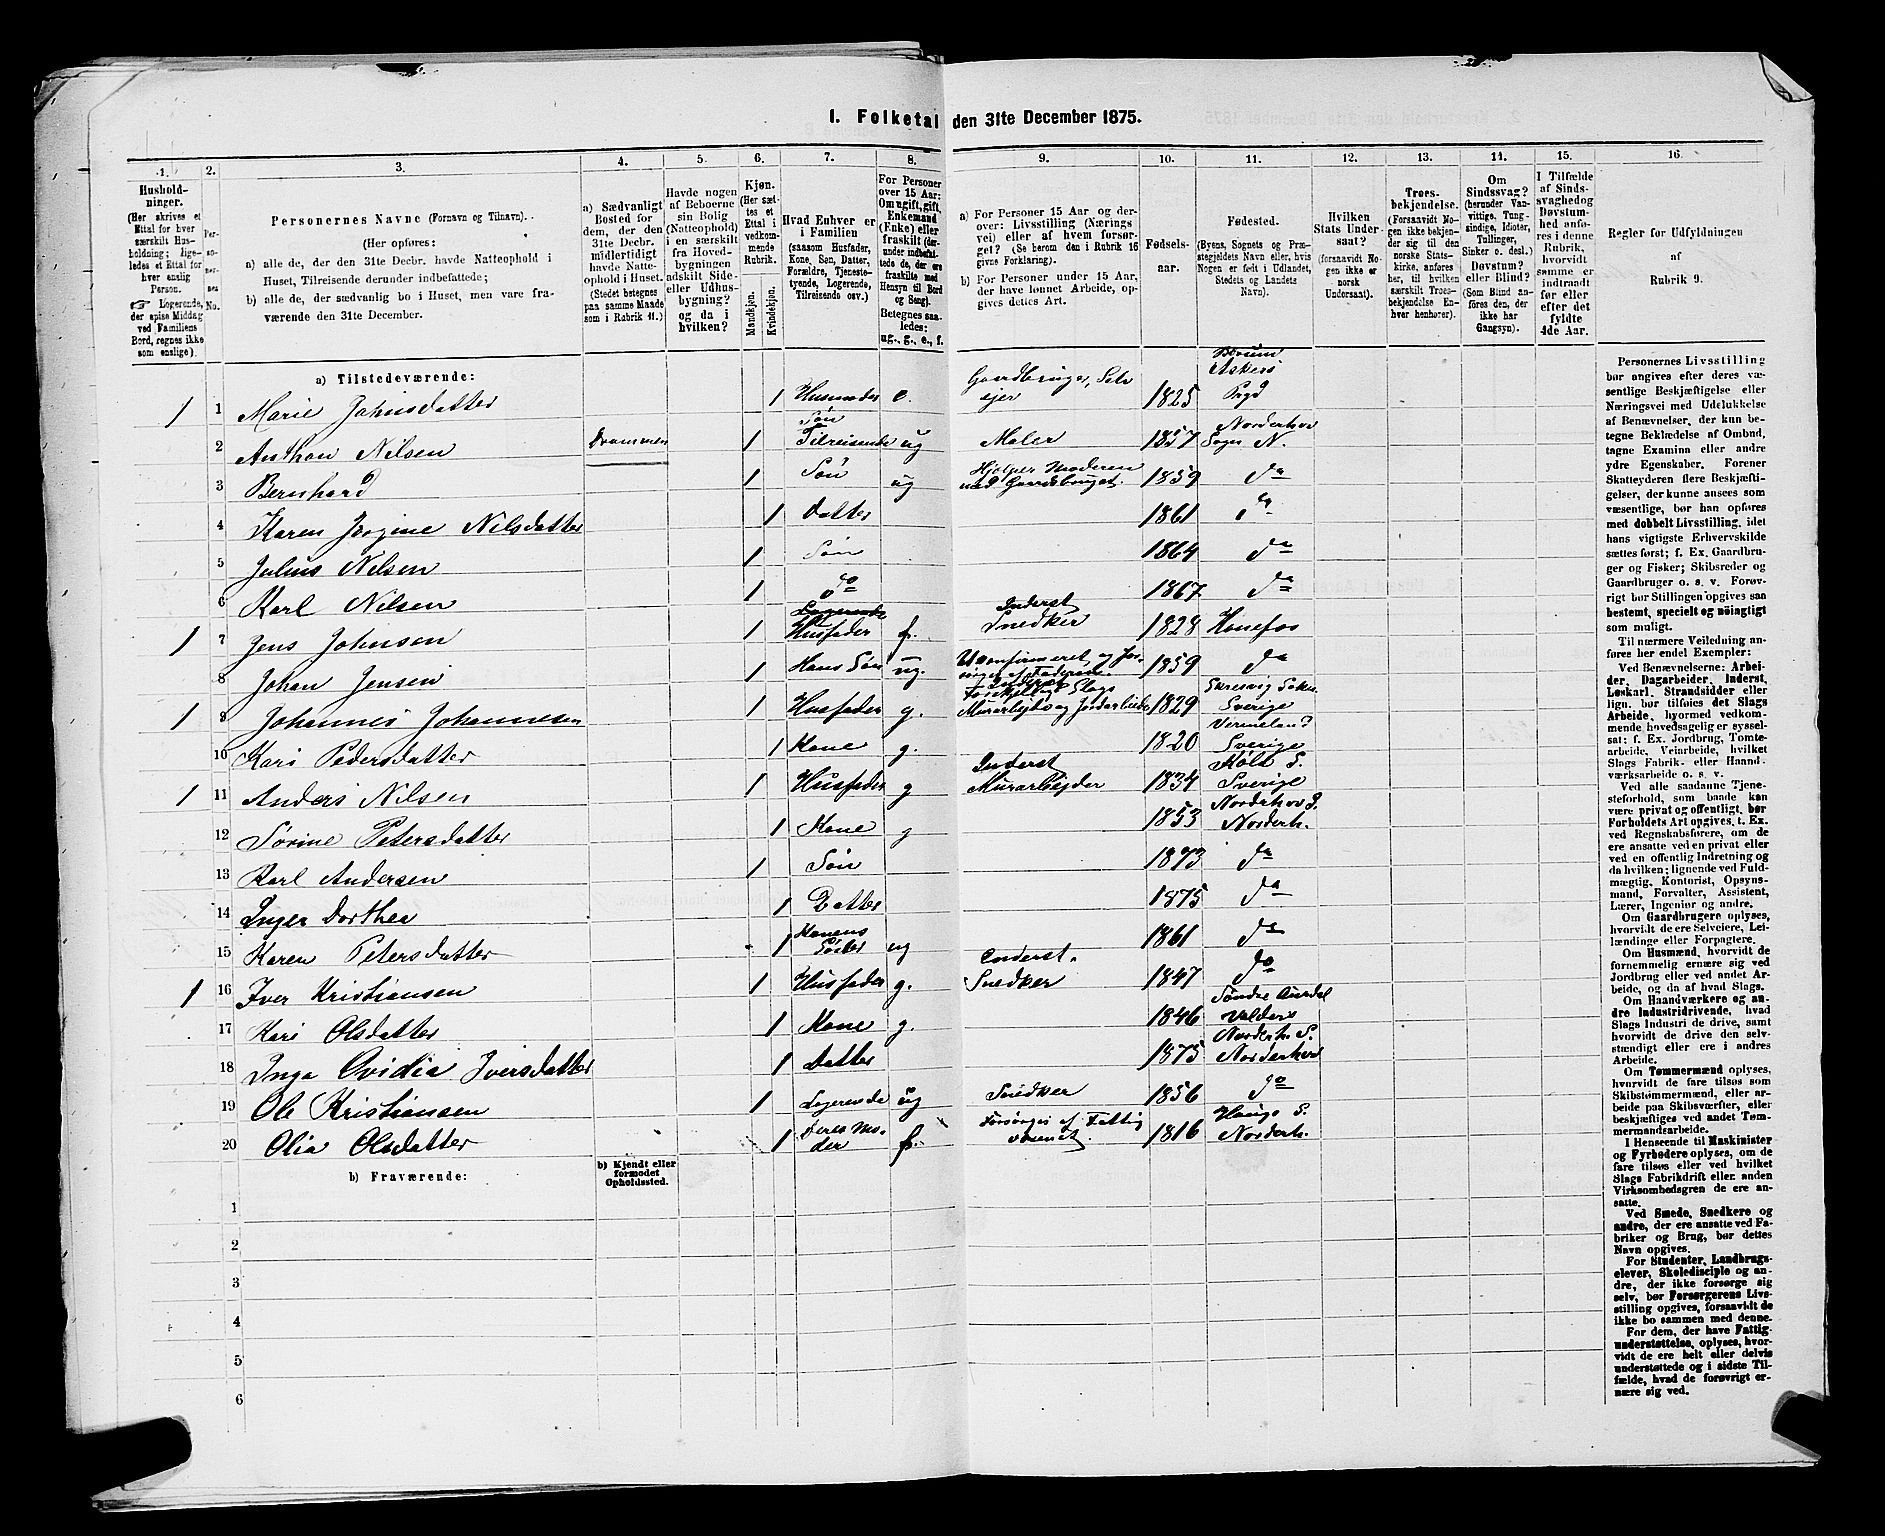 I. Folketal den 31te December 1875.
1. 2. 3. 4. 5. 6. 7. 8. 9. 10. 11. 12. 13. 14. 15. 16.
Husholdninger.
(Her skrives et Ettal for hver særskilt Husholdning; ligeledes et Ettal for hver enslig Person.
☞ Logerende, der spise Middag ved Familiens Bord, regnes ikke som enslige).
Personernes No.
Personernes Navne (Fornavn og Tilnavn).
(Her opføres:
a) alle de, der den 31te Decbr. havde Natteophold i Huset, Tilreisende derunder indbefattede;
b) alle de, der sædvanlig bo i Huset, men vare fraværende den 31te December.
a) Sædvanligt Bosted for dem, der den 31te Decbr. midlertidigt havde Natteophold i Huset. (Stedet betegnes paa samme Maade som i Rubrik 11.)
Havde nogen af Beboerne sin Bolig (Natteophold) i en særskilt fra Hovedbygningen adskilt Side- eller Udhusbygning? og da i hvilken?
Kjøn. (Her sættes et Ettal i vedkommende Rubrik. Mandkjøn. Kvindekjøn.
Hvad Enhver er i Familien (saasom Husfader, Kone, Søn, Datter, Forældre, Tjenestetyende, Logerende, Tilreisende osv.)
For Personer over 15 Aar: Om ugift, gift, Enkemand (Enke) eller fraskilt (derunder indbefattede de, der ere fraskilte med Hensyn til Bord og Seng). Betegnes saaledes: ug., g., e., f.
a) For Personer 15 Aar og derover: Livsstilling (Næringsvei) eller af hvem forsørget? (Se herom den i Rubrik 16 givne Forklaring).
b) For Personer under 15 Aar, der have lønnet Arbeide, opgives dettes Art.
Fødselsaar.
Fødested.
(Byens, Sognets og Præstegjeldets Navn eller, hvis Nogen er født i Udlandet, Stedets og Landets Navn).
Hvilken Stats Undersaat? (forsaavidt Nogen ikke er norsk Undersaat).
Troesbekjendelse. (Forsaavidt Nogen ikke bekjender sig til den norske Statskirke, anføres her, til hvilken særskilt Troesbekjendelse Enhver henhører).
Om Sindssvag? (herunder Vanvittige, Tungsindige, Idioter, Tullinger, Sinker o. desl.) Døvstum? eller Blind? (Som Blind anføres den, der ikke har Gangsyn).
I Tilfælde af Sindssvaghed og Døvstumhed anføres i denne Rubrik, hvorvidt samme er indtraadt før eller efter det fyldte 4de Aar.
Regler for Udfyldningen af Rubrik 9.
a) Tilstedeværende:
1 1 Marie Johnsdatter 1 Husmoder e. Gaardbruger, Selvejer 1825 Berum Askers Prgd
2 Anthon Nilsen Drammen 1 Søn Tilreisende ug Maler 1857 Norderhov Sogn N.
3 Bernhard 1 Søn ug Hjelper Moderen med Gaardsbruget. 1859 do
4 Karen Jørgine Nilsdatter 1 Datter 1861 do
5 Julius Nilsen 1 Søn 1864 do
6 Karl Nilsen 1 do 1867 do
1 7 Jens Johnsen 1 Logerende Husfader f. Inderst Snedker 1828 Hønefos
8 Johan Jensen 1 Hans Søn ug. Ukonfirmeret og forsørges af Faderen. 1859 do
1 9 Johannes Johannesen 1 Husfader g. Inderst Forskjellig Slags Murarbejde og Jordarbeide 1829 Sverige
10 Kari Pedersdatter 1 Kone g. 1820 Vermeland Sverige
1 11 Anders Nilsen 1 Husfader g Inderst Murarbejder 1834 S. Sverige
12 Sørine Petersdatter 1 Kone g 1853 Norderhov S. Norderh.
13 Karl Andersen 1 Søn 1873 do
14 Inger Dorthea 1 Datter 1875 do
15 Karen Petersdatter 1 Konens Søster ug 1861 do
1 16 Iver Kristiansen 1 Husfader g. Inderst. Snedker 1847 do
17 Kari Olsdatter 1 Kone g. 1846 Søndre Aurdal Valders
18 Inga Ovidia Iversdatter 1 Datter 1875 Norderh. S. Norderhov
19 Ole Kristiansen 1 Logerende ug Snedker 1856 do
20 Olia Olsdatter 1 Deres Moder f. Forsørges af Fattigvæsenet. 1816 Haugs S. Norderh.
b) Fraværende:
b) Kjendt eller formodet Opholdssted.
1
2
3
4
5
6
Personernes Livsstilling bør angives efter deres væsentlige Beskjæftigelse eller Næringsvei med Udelukkelse af Benævnelser, der kun betegne Beklædelse af Ombud, tagne Examina eller andre ydre Egenskaber. Forener Skatteyderen flere Beskjæftigelser, der kunne ansees som væsentlige, bør han opføres med dobbelt Livsstilling, idet hans vigtigste Erhvervskilde sættes først; f. Ex. Gaardbruger og Fisker; Skibsreder og Gaardbruger o. s. v. Forøvrigt bør Stillingen opgives saa bestemt, specielt og nøiagtigt som muligt.
Til nærmere Veiledning anføres her endel Exempler:
Ved Benævnelserne: Arbeider, Dagarbeider, Inderst, Løskarl, Strandsidder eller lign. bør tilføies det Slags Arbeide, hvormed vedkommende hovedsagelig er sysselsat; f. Ex. Jordbrug, Tomtearbeide, Veiarbeide, hvilket Slags Fabrik- eller Haandværksarbeide o. s. v.
Ved alle saadanne Tjenesteforhold, som baade kan være privat og offentligt, bør Forholdets Art opgives, t. Ex. ved Regnskabsførere, om de ere ansatte ved en privat eller ved en offentlig Indretning og da hvilken; lignende ved Fuldmægtig, Kontorist, Opsynsmand, Forvalter, Assistent, Lærer, Ingeniør og andre.
Om Gaardbrugere oplyses, hvorvidt de ere Selveiere, Leilændinge eller Forpagtere.
Om Husmænd, hvorvidt de fornemmelig ernære sig ved Jordbrug eller ved andet Arbeide, og da af hvad Slags.
Om Haandværkere og andre Industridrivende, hvad Slags Industri de drive, samt hvorvidt de drive den selvstændigt eller ere i andres Arbeide.
Om Tømmermænd oplyses, hvorvidt de fare tilsøs som Skibstømmermænd, eller arbeide paa Skibsværfter, eller beskjæftiges ved andet Tømmermandsarbeide.
I Henseende til Maskinister og Fyrbødere oplyses, om de fare tilsøs eller ved hvilket Slags Fabrikdrift eller anden Virksomhedsgren de ere ansatte.
Ved Smede, Snedkere og andre, der ere ansatte ved Fabriker og Brug, bør dettes Navn opgives.
For Studenter, Landbrugselever, Skoledisciple og andre, der ikke forsørge sig selv, bør Forsørgerens Livsstilling opgives, forsaavidt de ikke bo sammen med denne.
For dem, der have Fattigunderstøttelse, oplyses, hvorvidt de ere helt eller delvis understøttede og i sidste Tilfælde, hvad de forøvrigt ernære sig ved.